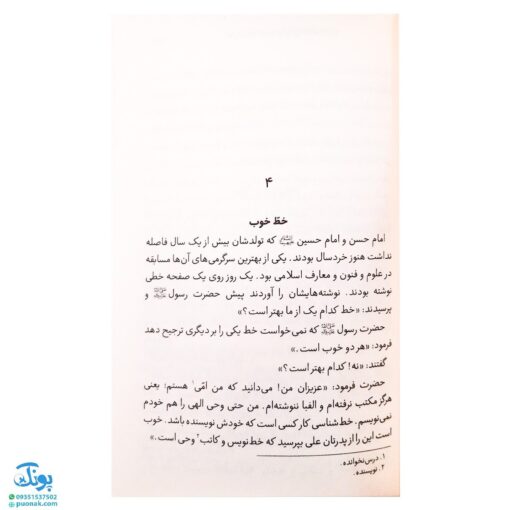 ۴
خطّ خوب
امام حسن و امام حسین که تولدشان بیش از یک سال فاصله
نداشت هنوز خردسال بودند. یکی از بهترین سرگرمی‌های آن‌ها مسابقه
در علوم و فنون و معارف اسلامی بود. یک روز روی یک صفحه خطی
نوشته بودند. نوشته‌هایشان را آوردند پیش حضرت رسول ﷺ و
پرسیدند: «خط کدام یک از ما بهتر است؟»
حضرت رسول ﷺ که نمی‌خواست خط یکی را بر دیگری ترجیح دهد
فرمود: «هر دو خوب است.»
گفتند: «نه! کدام بهتر است؟»
حضرت فرمود: «عزیزان من! می‌دانید که من امّی۱ هستم: یعنی
هرگز مکتب نرفته‌ام و الفبا ننوشته‌ام. من حتی وحی الهی را هم خودم
نمی‌نویسم. خط‌شناسی کار کسی است که خودش نویسنده باشد. خوب
است این را از پدرتان علی بپرسید که خط‌نویس و کاتب۲ وحی است.»
۱. درس‌نخوانده.
۲. نویسنده.
پونک
09351537502
puonak.com